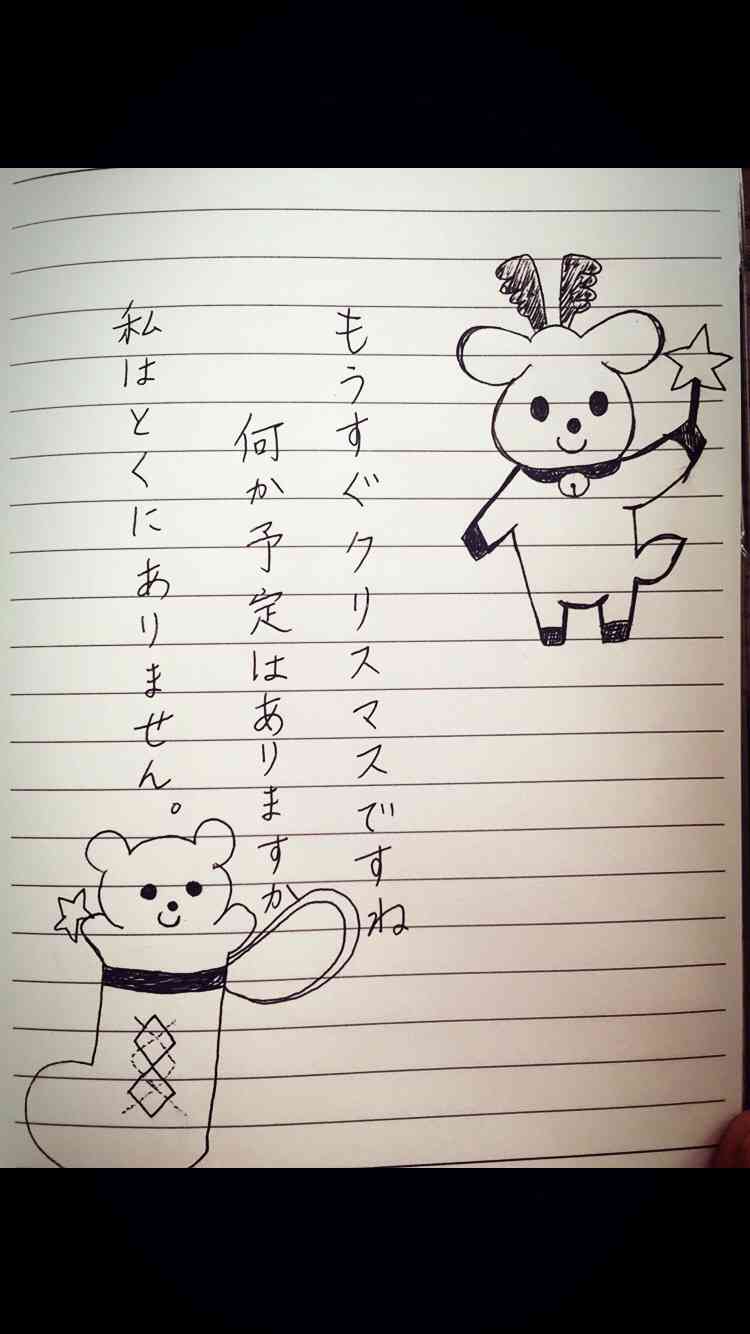 もうすぐクリスマスですね
何か予定はありますか
私はとくにありません。